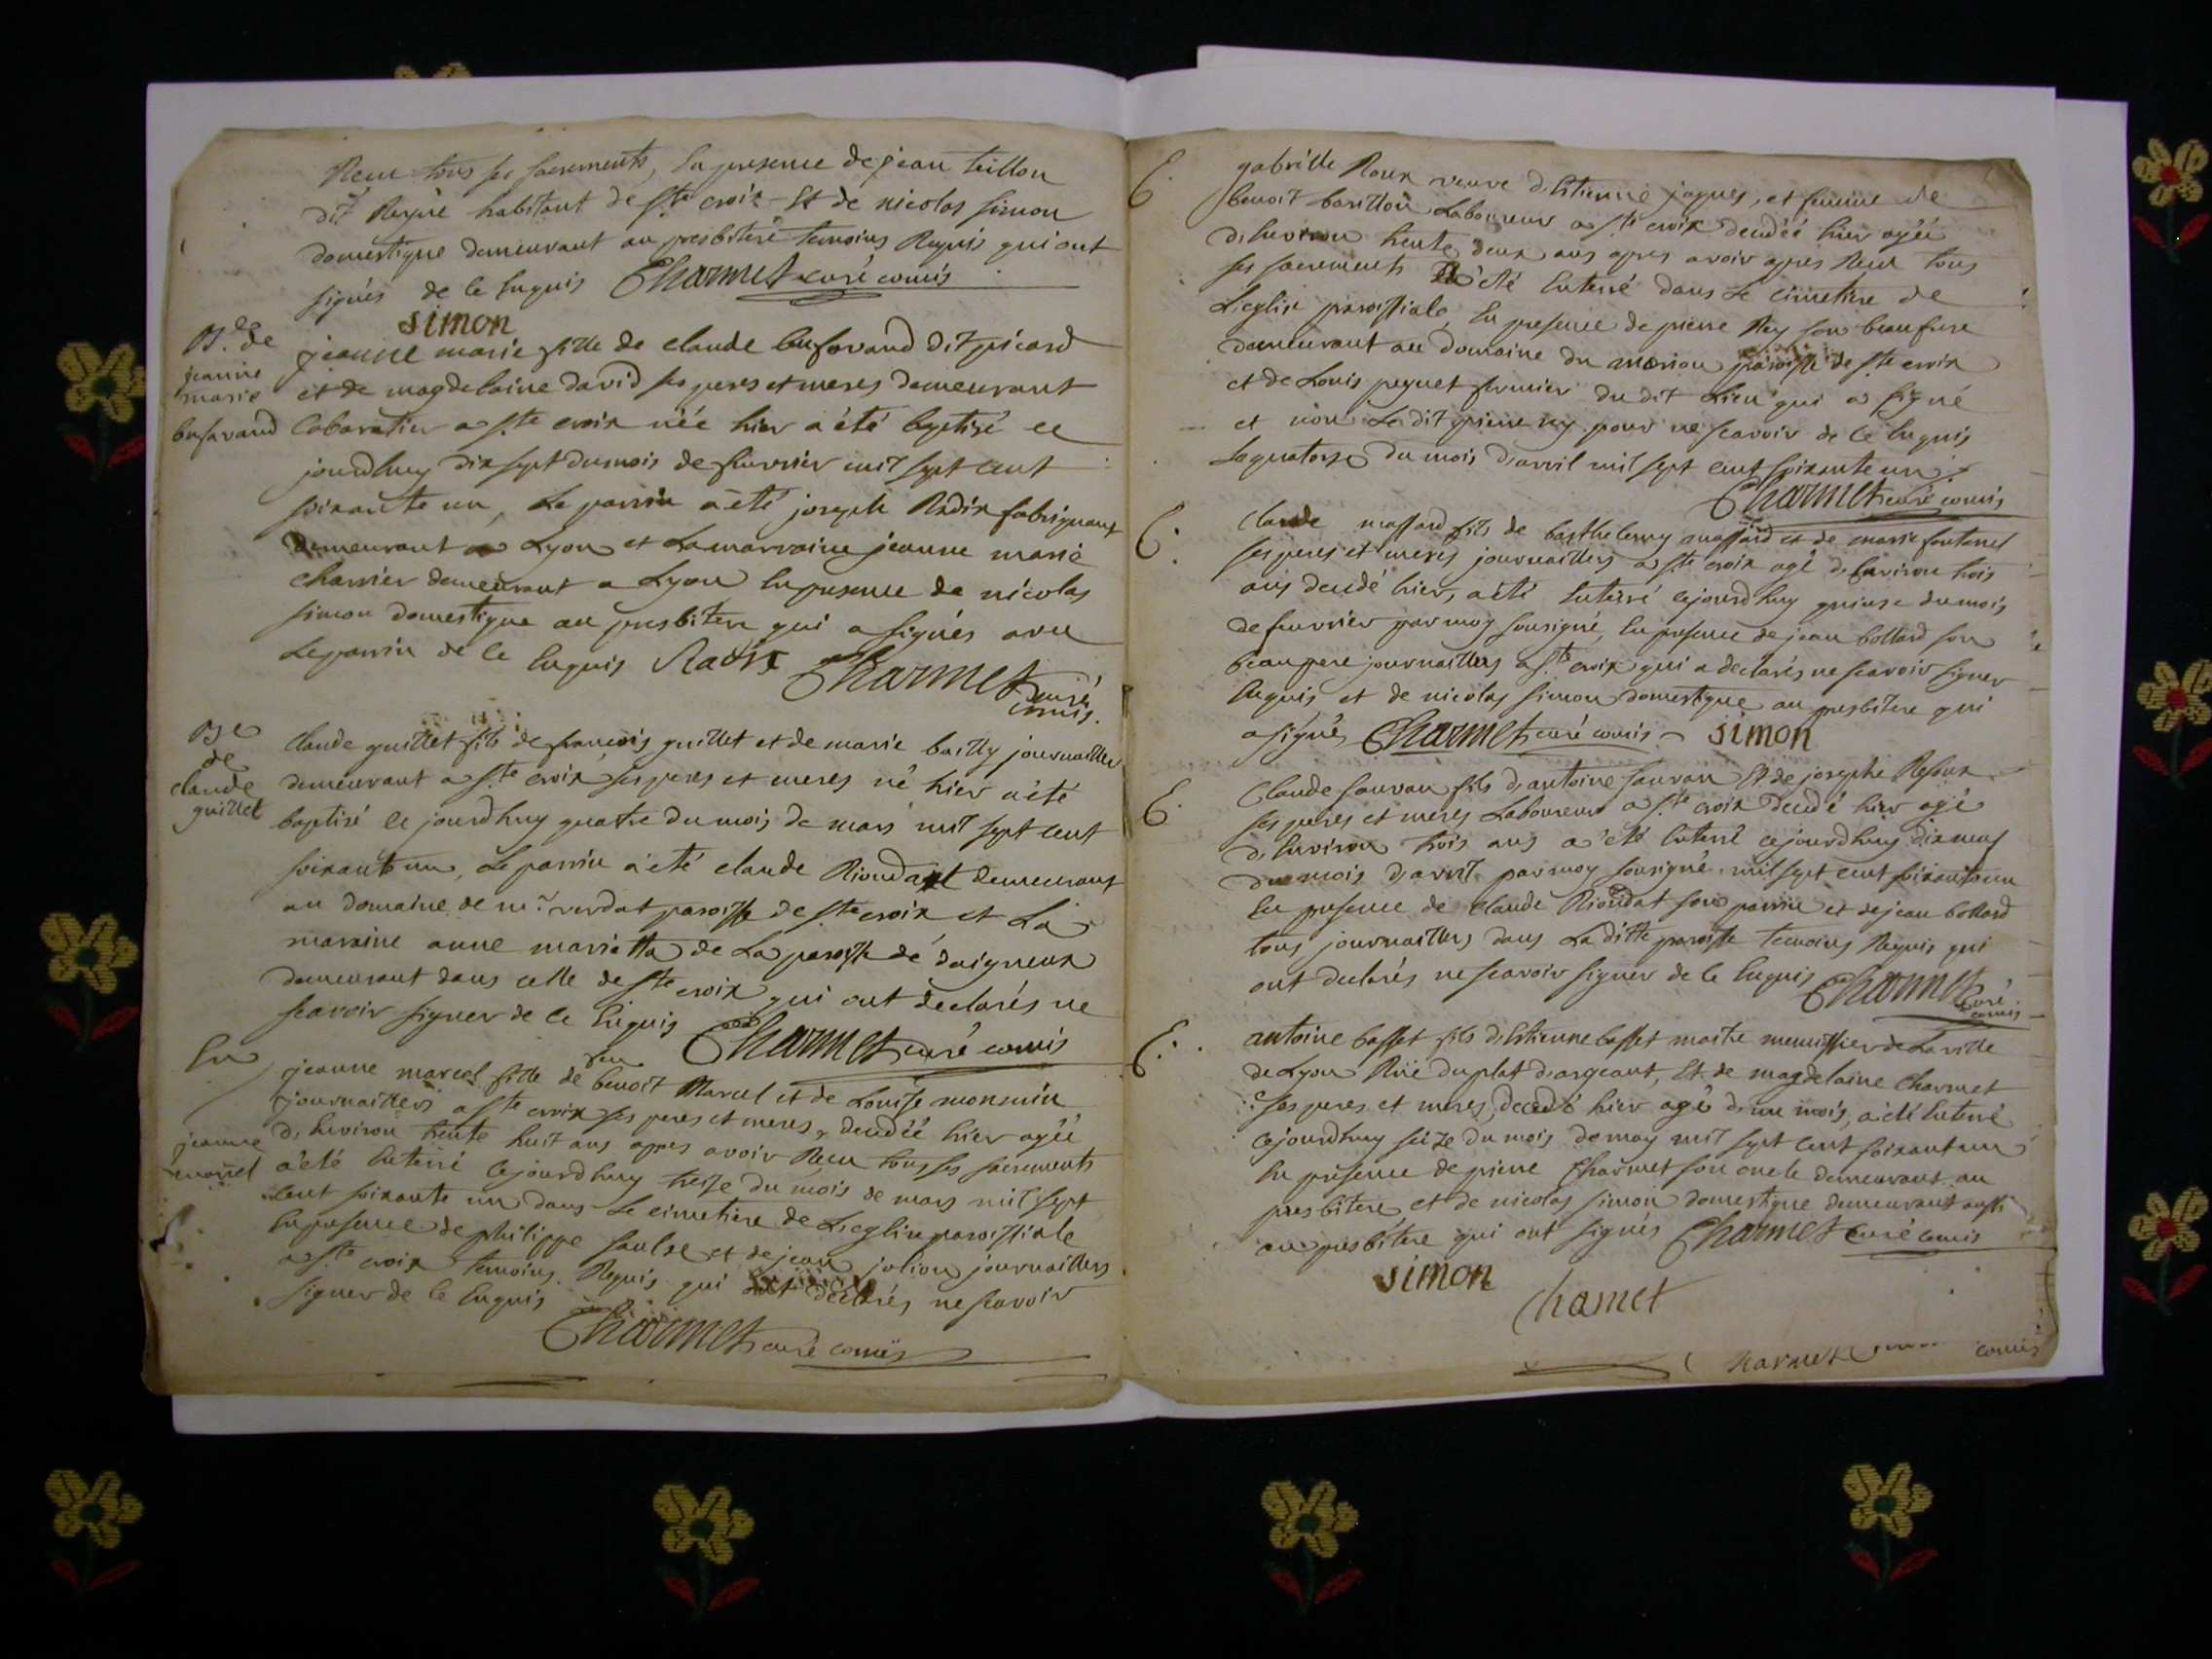 Receu tous ses sacrements, En presence de jean teillon
dit Reyne habitant de Ste croix Et de nicolas simon
domestique demeurant au presbitere temoins Requis qui ont
signés de ce Enquis Charmet curé comis
simon
B. de
jeanne
marie
bufavand
jeanne marie fille de claude bufavand dit picard
et de magdelaine david ses peres et meres demeurant
Cabaratier a Ste croix néé hier a été baptisé ce
jourdhuy dix sept du mois de fuvrier mil sept cent
soixante un, Le parrin a été joseph Radix fabriquant
demeurant a Lyon et La marraine jeanne marie
charrier demeurant a Lyon En presence de nicolas
simon domestique au presbitere qui a signés avec
Le parrin de ce Enquis Radix Charmet curé
comis.
Be
de
claude
guillet
Claude guillet fils de francois guillet et de marie bailly journaillier
demeurant a Ste croix ses peres et meres né hier a été
baptisé ce jourdhuy quatre du mois de mars mil sept cent
soixante un, Le parrin a été claude Riondat demeurant
au domaine de mr. verdat paroisse de Ste croix et La
maraine anne mariette de La paroisse de daigneux
demeurant dans celle de Ste croix qui ont declarés ne
scavoir signer de ce Enquis Charmet curé comis
En
jeanne
marcel
jeanne marcel fille de feu benoit Marcel et de Louise monmin
journailliers a Ste croix ses peres et meres, decedéé hier agéé
d'Environ trente huit ans apres avoir Receu tous ses sacrements
a été Enterré cejourdhuy treise du mois de mars mil sept
cent soixante un dans Le cimetiere de L'eglise paroissiale
En presence de philippe saulse et de jean jolion journailliers
a Ste croix temoins Requis qui ont declarés ne scavoir
signer de ce Enquis
Charmet curé comis
E.
gabrielle Roux veuve d'Etienne jaques, et femme de
benoit barillon Laboureur a Ste croix decedéé hier agéé
d'Environ trente deux ans apres avoir apres Receu tous
ses sacrements a été Enterré dans Le cimetiere de
L'eglise paroissiale, En presence de pierre Rey son beaufrere
demeurant au domaine du mariou paroisse de Ste croix
et de Louis peguet fermier du dit Lieu qui a signé
et non Le dit pierre rey pour ne scavoir de ce Enquis
Le quatorse du mois d'avril mil sept cent soixante un
Charmet curé comis
E.
Claude massard fils de barthelemy massard et de marie fontanel
ses peres et meres journailliers a Ste croix agé d'Environ trois
ans decedé hier, a été Enterré cejourdhuy quinze du mois
de fuvrier par moy sousigné, En presence de jean bollard son
beaupere journailliers a Ste croix qui a declarés ne scavoir signer
Enquis, et de nicolas simon domestique au presbitere qui
a signé, Charmet curé comis simon
E.
Claude sauvan fils d'antoine sauvan Et de josephe
ses peres et meres Laboureur a Ste croix decedé hier agé
d'Environ trois ans a été Enterré cejourdhuy dix neuf
du mois d'avril par moy sousigné mil sept cent soixante un
En presence de Claude Riondat son parrin et de jean bollard
tous journailliers dans La ditte paroisse temoins Requis qui
ont declarés ne scavoir signer de ce Enquis Charmet curé
comis
E.
antoine basset fils d'Etienne basset maitre menuissier de La ville
de Lyon Rüe du plat d'argeant, Et de magdelaine Charmet
ses peres et meres, decedé hier agé d'un mois, a été Enterré
cejourdhuy seize du mois de may mil sept cent soixante un
En presence de pierre Charmet son oncle demeurant au
presbitere et de nicolas simon domestique demeurant aussi
au presbitere qui ont signés Charmet curé comis
simon
Chamet
Charmet curé comis